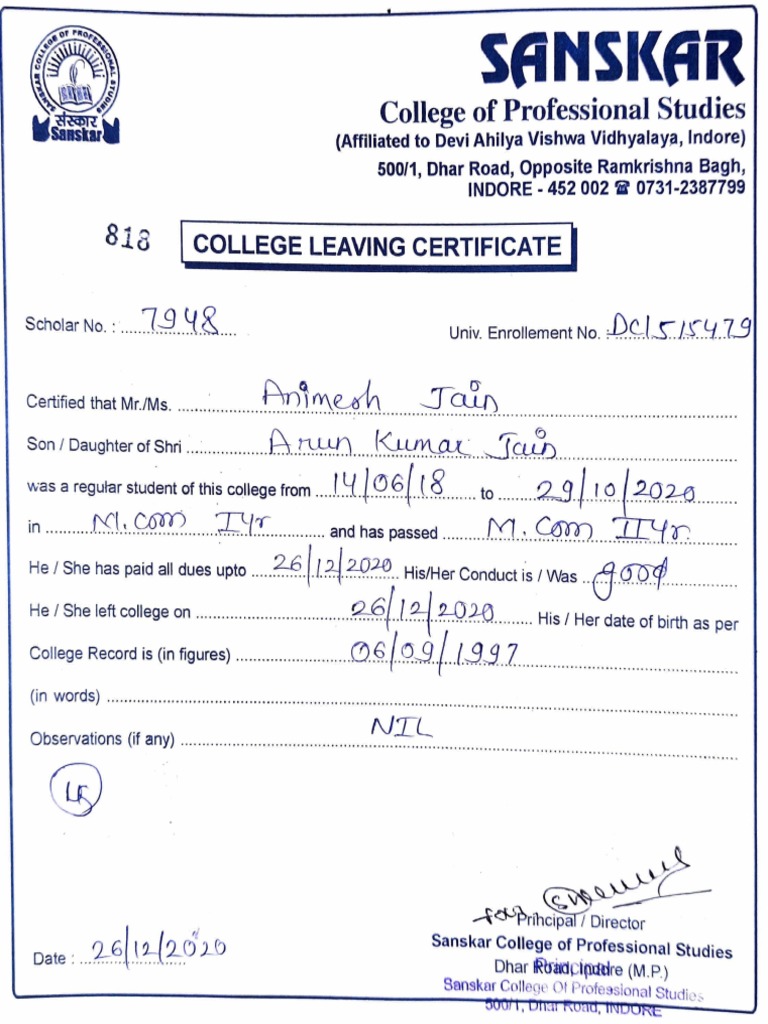 SANSKAR COLLEGE OF PROFESSIONAL STUDIES
संस्कार
Sanskar
SANSKAR
College of Professional Studies
(Affiliated to Devi Ahilya Vishwa Vidhyalaya, Indore)
500/1, Dhar Road, Opposite Ramkrishna Bagh,
INDORE - 452 002 ☎ 0731-2387799
818
COLLEGE LEAVING CERTIFICATE
Scholar No. : 7948 Univ. Enrollement No. : DC1515479
Certified that Mr./Ms. Animesh Jain
Son / Daughter of Shri Arun Kumar Jain
was a regular student of this college from 14/06/18 to 29/10/2020
in M.com I Yr and has passed M.com II Yr.
He / She has paid all dues upto 26/12/2020 His/Her Conduct is / Was good
He / She left college on 26/12/2020 His / Her date of birth as per
College Record is (in figures) 06/09/1997
(in words)
Observations (if any) NIL
for
Principal / Director
Date : 26/12/2020
Sanskar College of Professional Studies
Dhar Road, Indore (M.P.)
Principal
Sanskar College Of Professional Studies
500/1, Dhar Road, INDORE